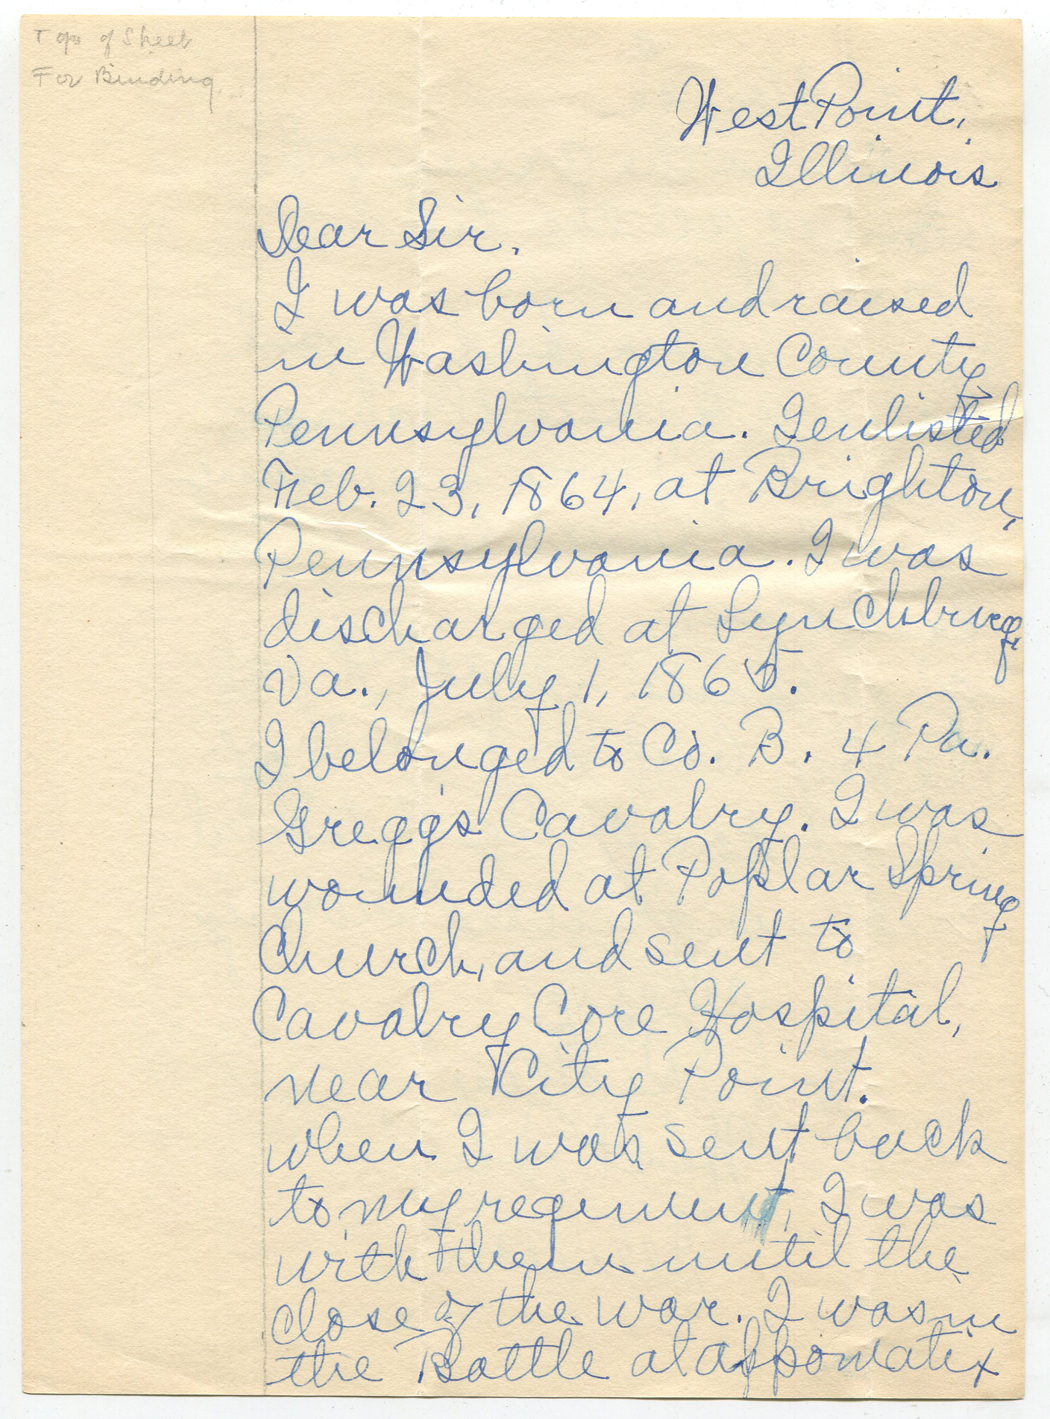 Top of Sheet
For Binding
West Point,
Illinois
Dear Sir.
I was born and raised
in Washington County
Pennsylvania. I enlisted
Feb. 23, 1864, at Brighton,
Pennsylvania. I was
discharged at Lynchburg.
Va., July 1, 1865.
I belonged to Co. B. 4 Pa.
Greggs Cavalry. I was
wounded at Poplar Spring
Church, and sent to
Cavalry Core Hospital,
near City Point.
when I was sent back
to my regement, I was
with them until the
close of the war. I was in
the Battle at appomatix